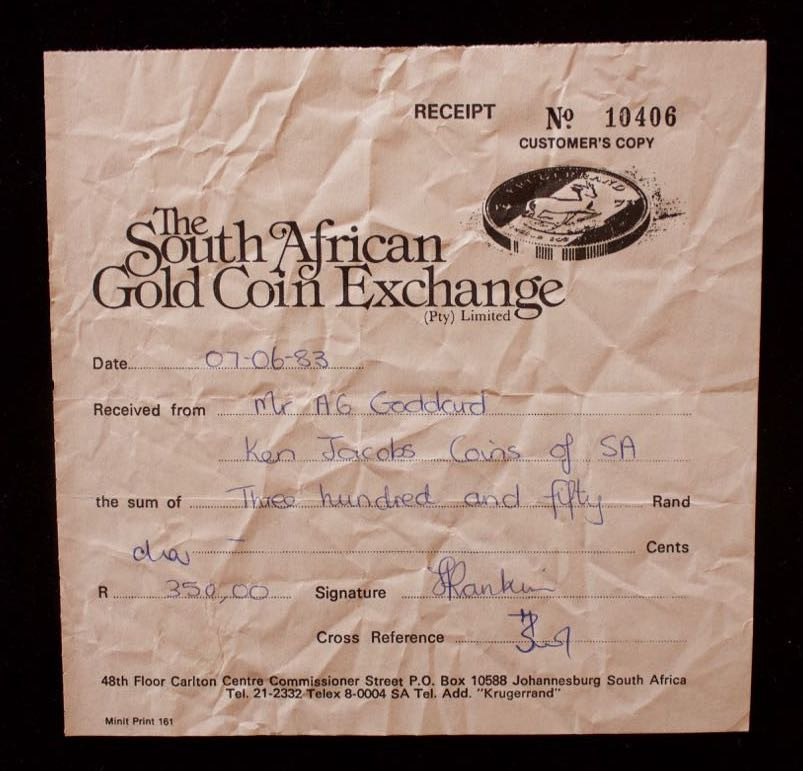 RECEIPT Nº 10406
CUSTOMER'S COPY
The
South African
Gold Coin Exchange
(Pty) Limited
Date 07-06-83
Received from Mr AG Goddard
Ken Jacobs Coins of SA
the sum of Three hundred and fifty Rand
– Cents
R 350,00 Signature
Cross Reference
48th Floor Carlton Centre Commissioner Street P.O. Box 10588 Johannesburg South Africa
Tel. 21-2332 Telex 8-0004 SA Tel. Add. "Krugerrand"
Minit Print 161